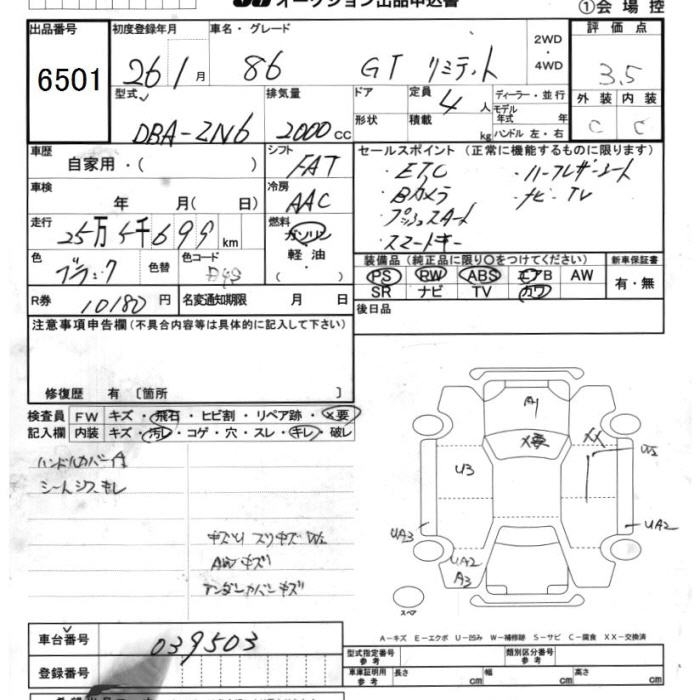 オークション出品申込書
①会場控
出品番号
6501
初度登録年月
26年1月
車名・グレード
86 GT リミテッド
2WD
・
4WD
評価点
3.5
外装 内装
C C
型式
DBA-ZN6
排気量
2000cc
ドア
形状
定員
4人
積載
kg
ディーラー・並行
モデル
年式 年
ハンドル 左・右
車歴
自家用・( )
シフト
FAT
セールスポイント (正常に機能するものに限ります)
・ETC ・ハーフレザーシート
・Bカメラ ・ナビ・TV
・プッシュスタート
・スマートキー
車検
年 月( 日)
冷房
AAC
走行
25万5千699km
燃料
ガソリン
軽油・
( )
色
ブラック
色替
色コード
D4S
装備品 (純正品に限り○をつけてください)
PS RW ABS エアB AW
SR ナビ TV カワ
新車保証書
有・無
R券
10180円
名変通知期限 月 日
後日品
注意事項申告欄(不具合内容等は具体的に記入して下さい)
修復歴 有 〔箇所 〕
検査員
記入欄
FW キズ・飛石・ヒビ割・リペア跡・×要
内装 キズ・汚レ・コゲ・穴・スレ・キレ・破レ
ハンドルカバー付
シートシワ、キレ
キズ小 スリキズ W2
AWキズ小
アンダーカバーキズ
A1
X要
XX
W2
U3
UA3
UA2
UA2
A3
スペア
A-キズ E-エクボ U-凹み W-補修跡 S-サビ C-腐食 XX-交換済
車台番号
039503
登録番号
型式指定番号
参考
類別区分番号
参考
車庫証明用
参考
長さ cm 幅 cm 高さ cm